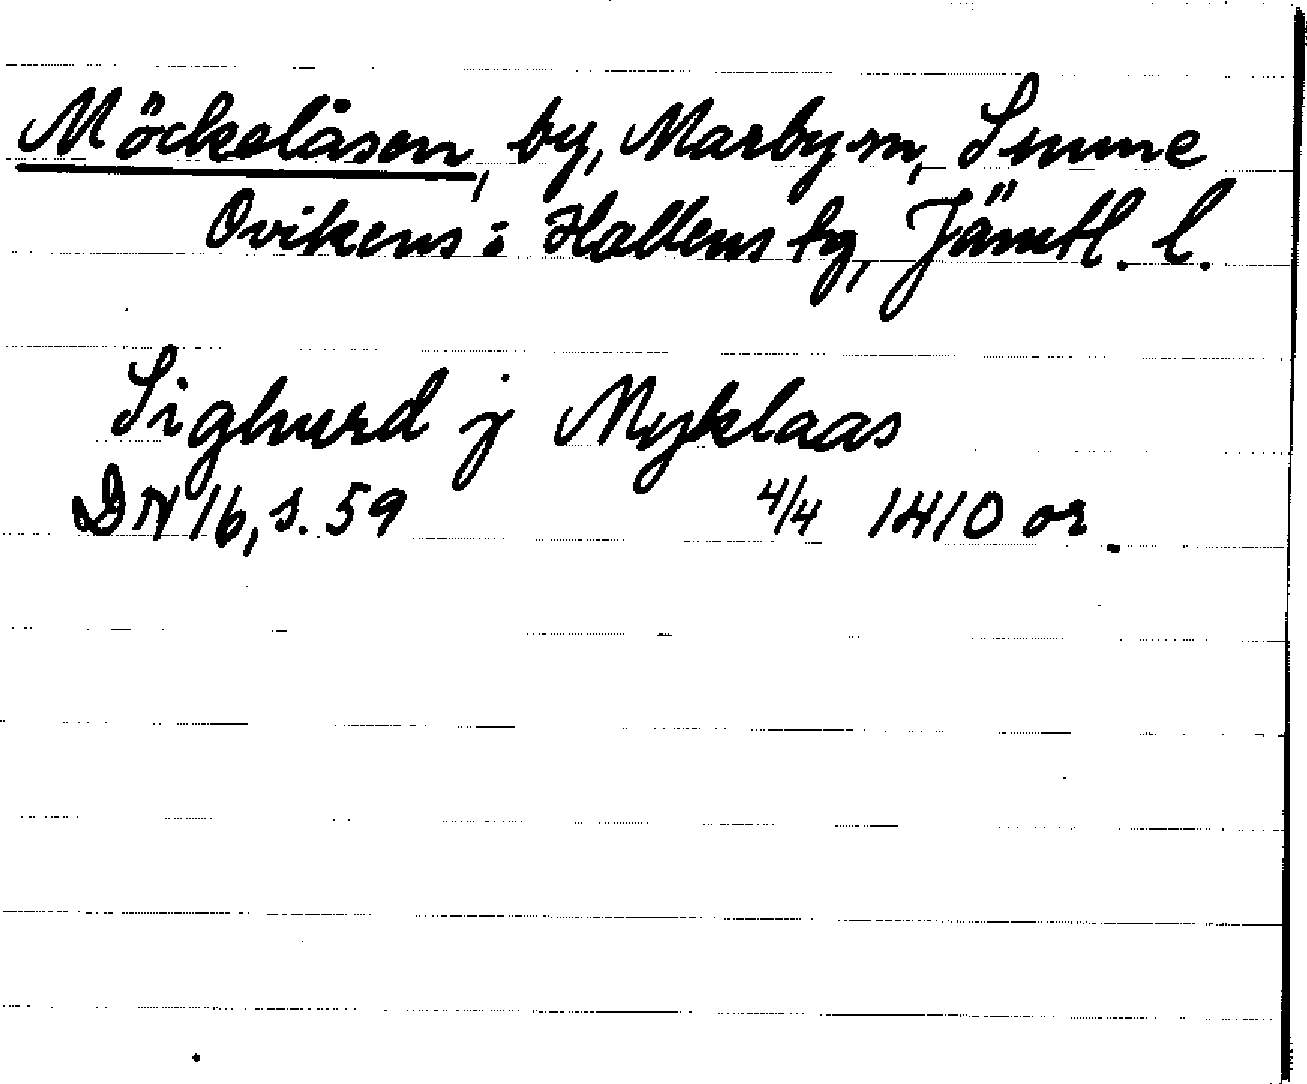 Möckelåsen, by, Marby sn, Sunne
Ovikens o Hallens tg, Jämtl. l.
Sighurd j Myklaas
DN 16, s. 59 4/4 1410 or.